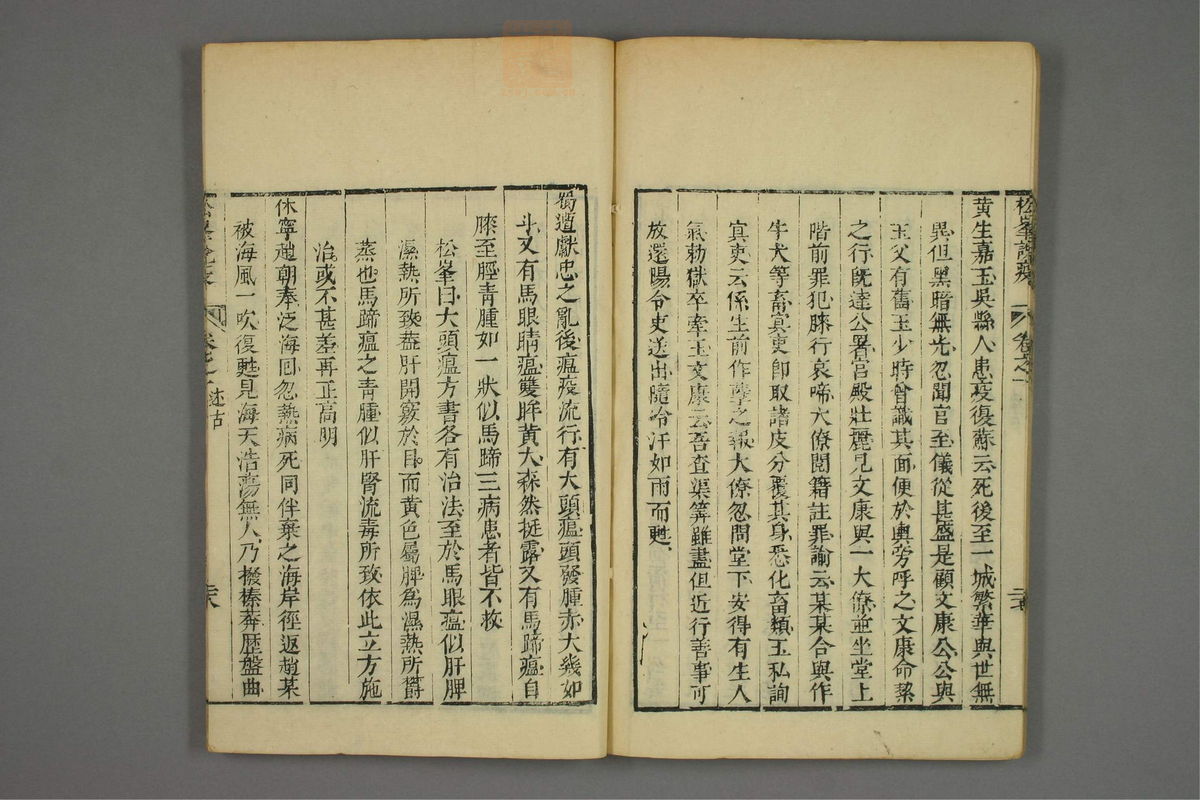 松峯說疫
卷之一
黄生嘉玉吳縣人患疫復蘇云死後至一城繁華與世無
異但黑暗無光忽聞官至儀從甚盛是顧文康公公與
玉父有舊玉少時曾識其面便於輿旁呼之文康命挈
之行既達公署宫殿壯麗見文康與一大僚並坐堂上
階前罪犯膝行哀啼大僚閱籍註罪諭云某某合與作
牛犬等畜冥吏即取諸皮分覆其身悉化畜類玉私詢
冥吏云係生前作孽之報大僚忽問堂下安得有生人
氣勅獄卒牽玉文康云吾查渠筭雖盡但近行善事可
放還陽令吏送出隨冷汗如雨而甦
蜀遭獻忠之亂後瘟疫流行有大頭瘟頭發腫赤大幾如
斗又有馬眼睛瘟雙眸黄大森然挺露又有馬蹄瘟自
膝至脛青腫如一狀似馬蹄三病患者皆不救
松峯曰大頭瘟方書各有治法至於馬眼瘟似肝脾
濕熱所致蓋肝開竅於目而黄色屬脾為濕熱所欝
蒸也馬蹄瘟之青腫似肝腎流毒所致依此立方施
治或不甚差再正高明
休寧趙朝奉泛海囘忽熱病死同伴棄之海岸徑返趙某
被海風一吹復甦見海天浩蕩無人乃撥榛莽歴盤曲
卷之一
述古